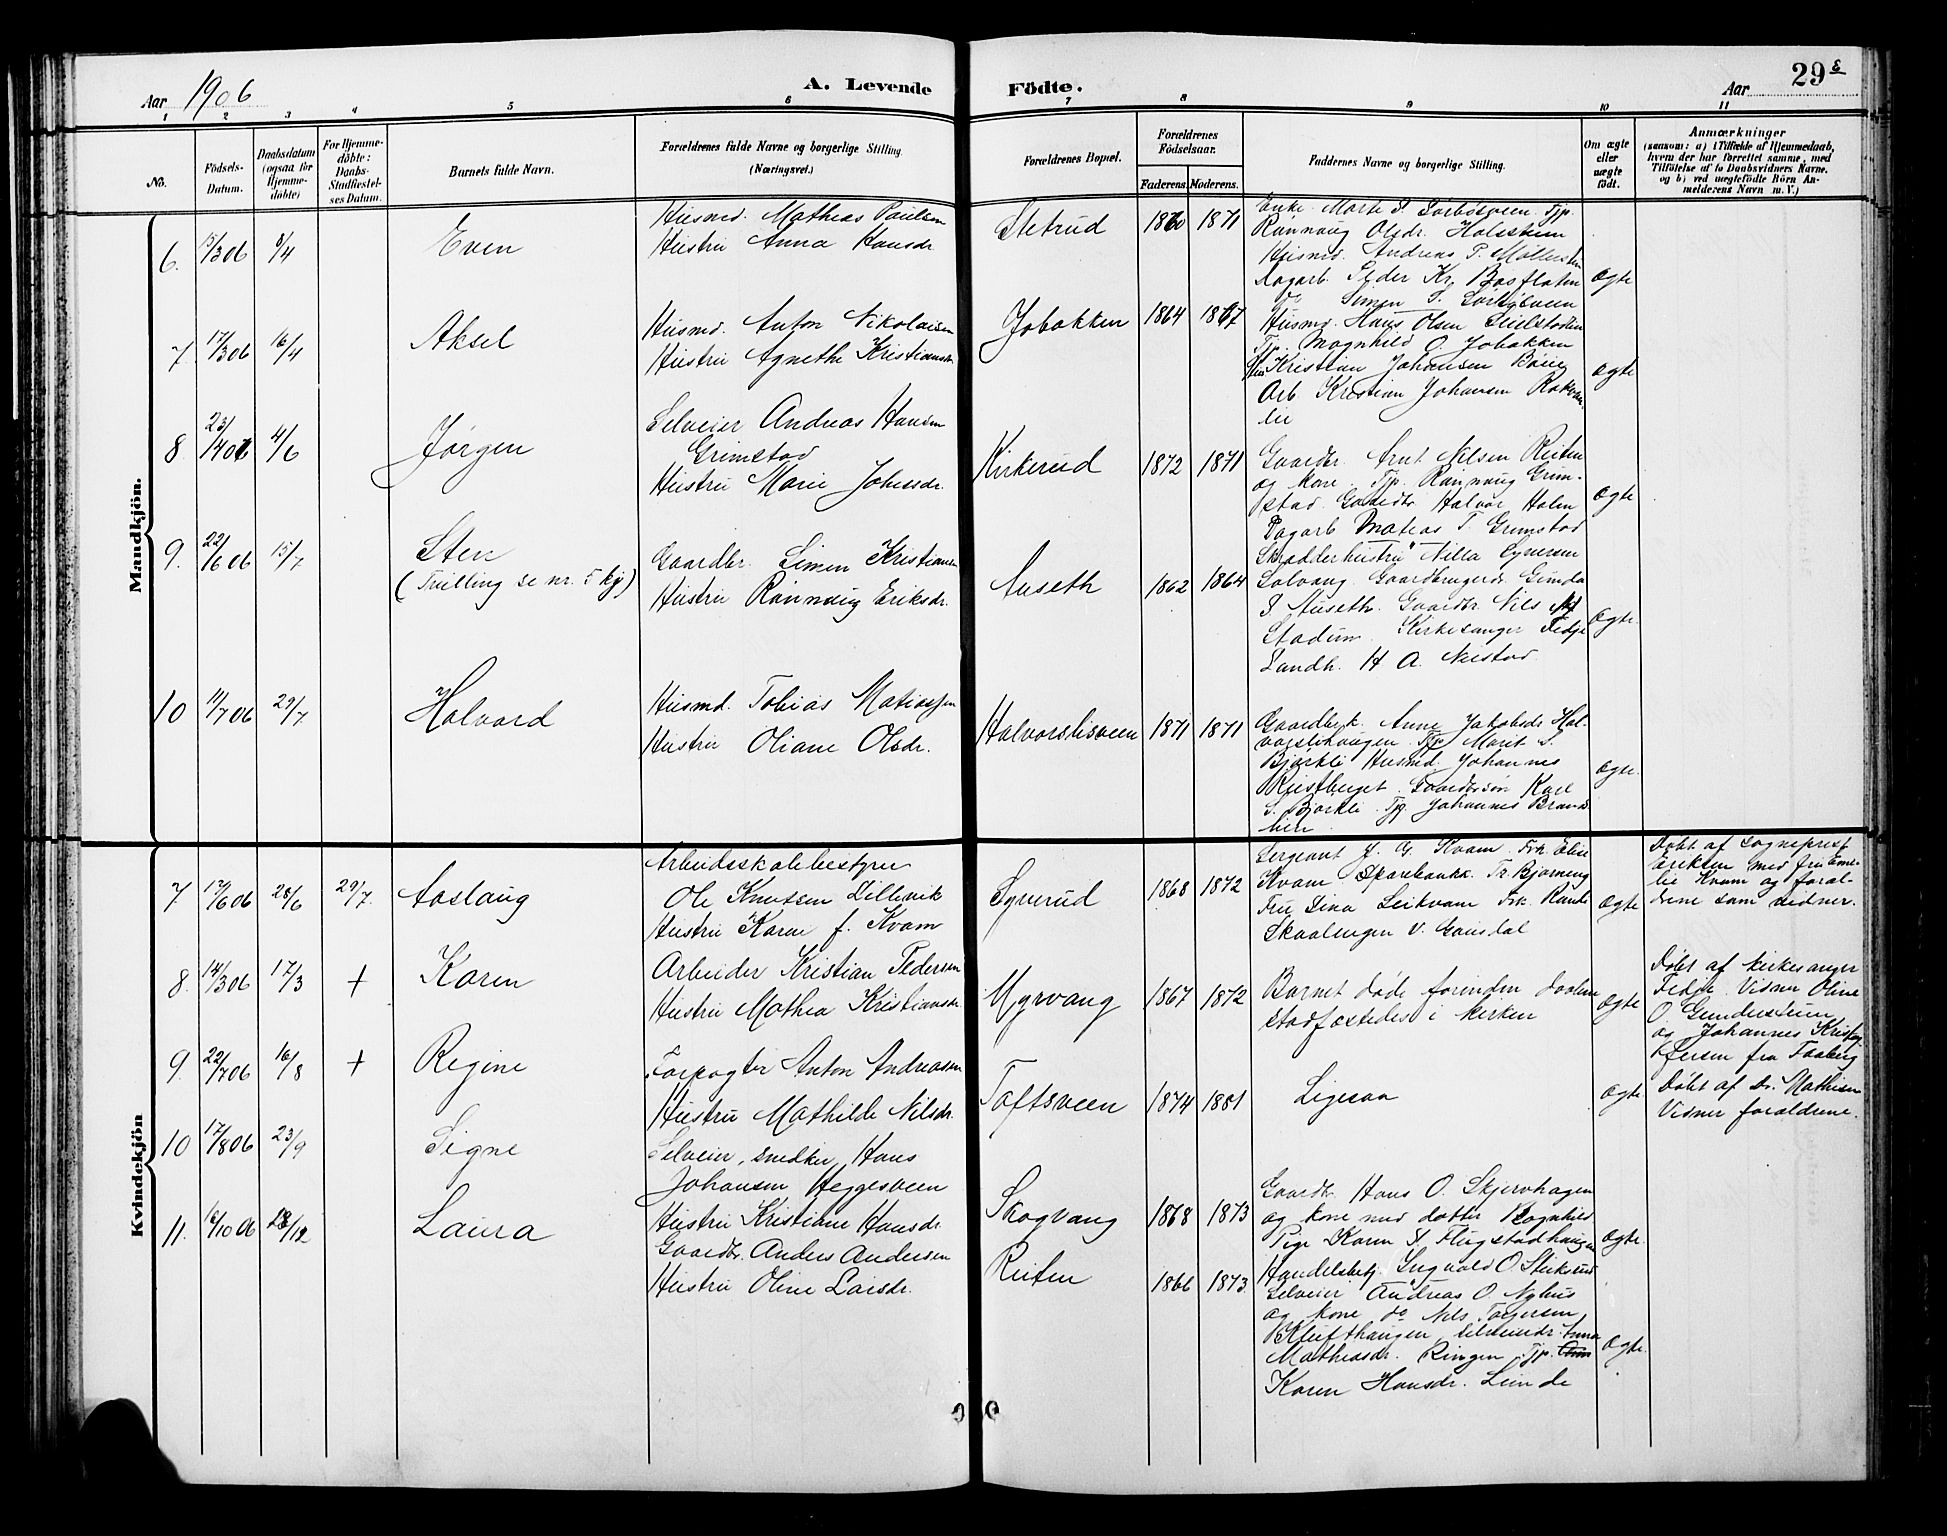 Aar 1906
A. Levende Födte.
Aar
29
1 2 3 4 5 6 7 8 9 10 11
No.
Födsels-Datum.
Daabsdatum (ogsaa for Hjemme-döbte)
For Hjemme-döbte: Daabs-Stadfæstel-ses Datum.
Barnets fulde Navn.
Forældrenes fulde Navne og borgerlige Stilling (Næringsvei.)
Forældrenes Bopæl.
Forældrenes Födselsaar.
Faderens. Moderens.
Faddernes Navne og borgerlige Stilling.
Om ægte eller uægte födt.
Anmærkninger
(saasom: a) i Tilfælde af Hjemmedaab,
hvem der har forrettet samme, med
Tilföielse af to Daabsvidners Navne.
og b) ved uægtefödte Börn An-
melderens Navn m. V.)
Mandkjön.
6. 15/3 06 8/4
Even
Husmd. Mathias Paulsen
Hustru Anna Hansdr
Stetrud
1860 1871
Enke Marte
Rønnaug Olsdr.
Husmd. Andreas P.
Dagarb. Peder Kr.
do Simen S.
Ægte
7 17/3 06 16/4
Aksel
Husmd. Anton Nikolaisen
Hustru Agnethe
Jobakken
1864 1867
Husmd. Hans Olsen
Tjp. Magnhild O. Jobakken
Kristian Johansen
Arb. Kristian Johansen
lie
Ægte
8 23/4 06 4/6
Jørgen
Selveier Andreas Hansen
Grimstad
Hustru Marie Johnsdr.
Kirkerud
1872 1871
Gaardbr. Arnt Nilsen Reiten
og kone. Tjp. Rønnaug Grim-
stad. Gaardbr Halvor Holm
Dagarb Matias T. Grimstad
Ægte
9. 22/6 06 15/7
Sten
(Tvilling se nr. 5 kj)
Gaardbr. Simen Kristiansen
Hustru Rønnaug Eriksdr.
Auseth
1862 1864
Skrædderhustru Nilla
Solvang. Gaardbrugerdr. Gunda
S Auseth. Gaardbr Nils
Stadum. Kirkesanger Fedje
Landh. H A. Nustad.
Ægte.
10 11/7 06 29/7
Halvard
Husmd. Tobias Matiassen
Hustru Oliane Olsdr.
Halvorslisveen
1871 1871
Gaardbrk. Anne Jakobsdr Hal-
vorslihaugen. Tjp Marit S.
Bjørkli Husmd. Johannes
Rustberget. Gaardbrsøn Karl
S. Bjørkli. Tjg. Johannes Brand-
lien.
Ægte.
Kvindekjön
7 17/6 06 28/6 29/7.
Aaslaug
Arbeidsskolebestyrer
Ole Knutsen Lillevik
Hustru Karen f. Kvam
Syverud
1868 1872
Sergeant J. G. Kvam. Frk Elise
Kvam. Sparebankk. Tr. Bjørneng
Fru Lina Leikvam Frk. Randi
Skaalengen V. Gausdal
Ægte
Døbt af sogneprest
Eriksen med fru Eme-
lie Kvam og foræl-
drene som vidner.
8. 14/3 06 17/3 +
Karen
Arbeider Kristian Pedersen
Hustru Mathea Kristiansdr
Myrvang
1867 1872
Barnet døde forinden daaben
stadfæstedes i kirken
Ægte
Døbt af kirkesanger
Fedje. Vidner Oline
O. Gundersteien
og Johannes Kristof-
fersen fra Faaberg
9. 22/7 06 16/8 +
Regine
Forpagter Anton Andreasen
Hustru Mathilde Nilsdr.
Toftsveen
1874 1881
Ligesaa
Ægte
Døbt af Dr. Mathisen
Vidner forældrene.
10 17/8 06 23/9
Signe
Selveier, snedker, Hans
Johansen Heggesveen
Hustru Kristiane Hansdr.
Skogvang
1868 1873
Gaardbr Hans O. Skjervhagen
og kone med datter Ragnhild
Pige Karen A. Flugstadhaugen
Ægte.
11. 16/10 06 28/12
Laura
Gaardbr. Anders Andersen
Hustru Oline Larsdr.
Reiten
1866 1873.
Handelsbetj. Sigvald O.
Selveier Andreas O. Nyhus
og kone do Nils Torgersen
Klufthaugen, Anna
Mathiasdr. Ringen. Tjp.
Karen Hansdr. Lunde
Ægte.